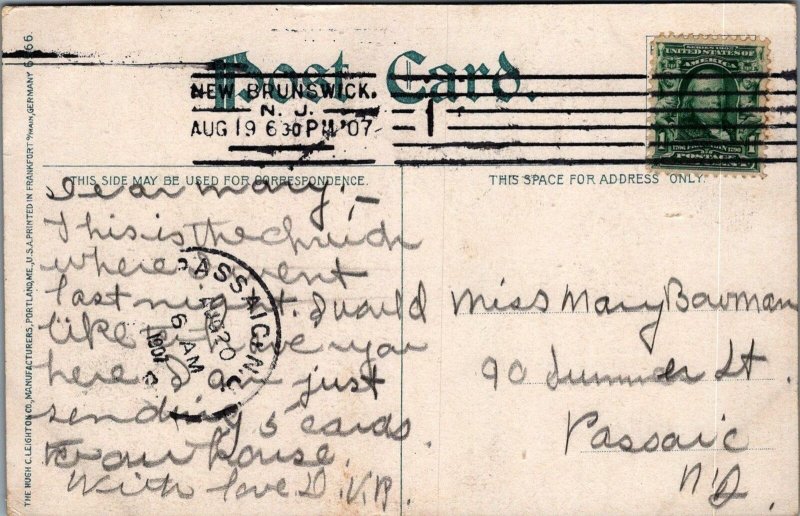 Post Card.
NEW BRUNSWICK.
N. J.
AUG 19 6 30 PM '07
1
SERIES 1902
UNITED STATES OF
AMERICA
POSTAGE
THIS SIDE MAY BE USED FOR CORRESPONDENCE.
THIS SPACE FOR ADDRESS ONLY.
THE HUGH C. LEIGHTON CO., MANUFACTURERS, PORTLAND, ME., U.S.A. PRINTED IN FRANKFORT o/MAIN, GERMANY
Dear Mary:—
This is the church
where I went
last night. I would
like to have you
here. I am just
sending 5 cards
to our house.
With love D. V. B.
PASSAIC, N.J.
AUG 20
6 AM
1907
Miss Mary Bowman
90 Summer St.
Passaic
N.J.